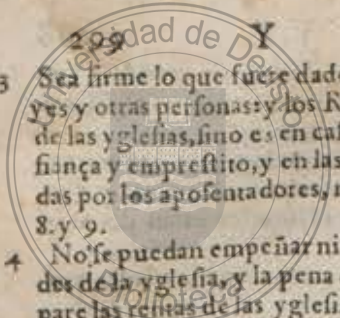 299 Y
3 Sea firme lo que fuere dado
yes y otras personas: y los R
de las yglesias, sino es en cas
fiança y emprestito, y en las
das por los aposentadores, n
8. y 9.
4 No se puedan empeñar ni
des de la yglesia, y la pena
pare las rentas de las yglesi
Universidad de Deusto
Biblioteca